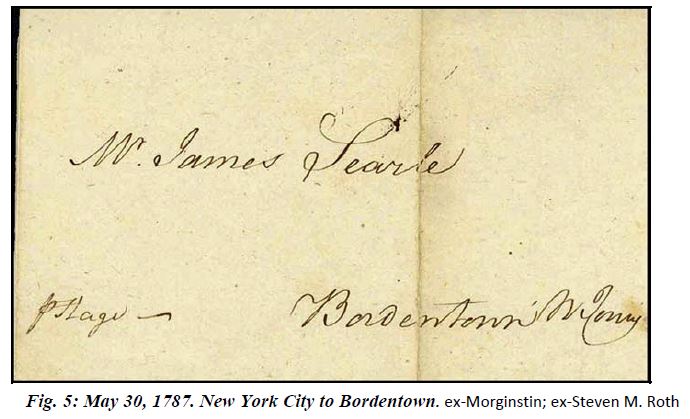 Mr. James Searle
p Stage —
Bordentown W Jersey
Fig. 5: May 30, 1787. New York City to Bordentown. ex-Morginstin; ex-Steven M. Roth